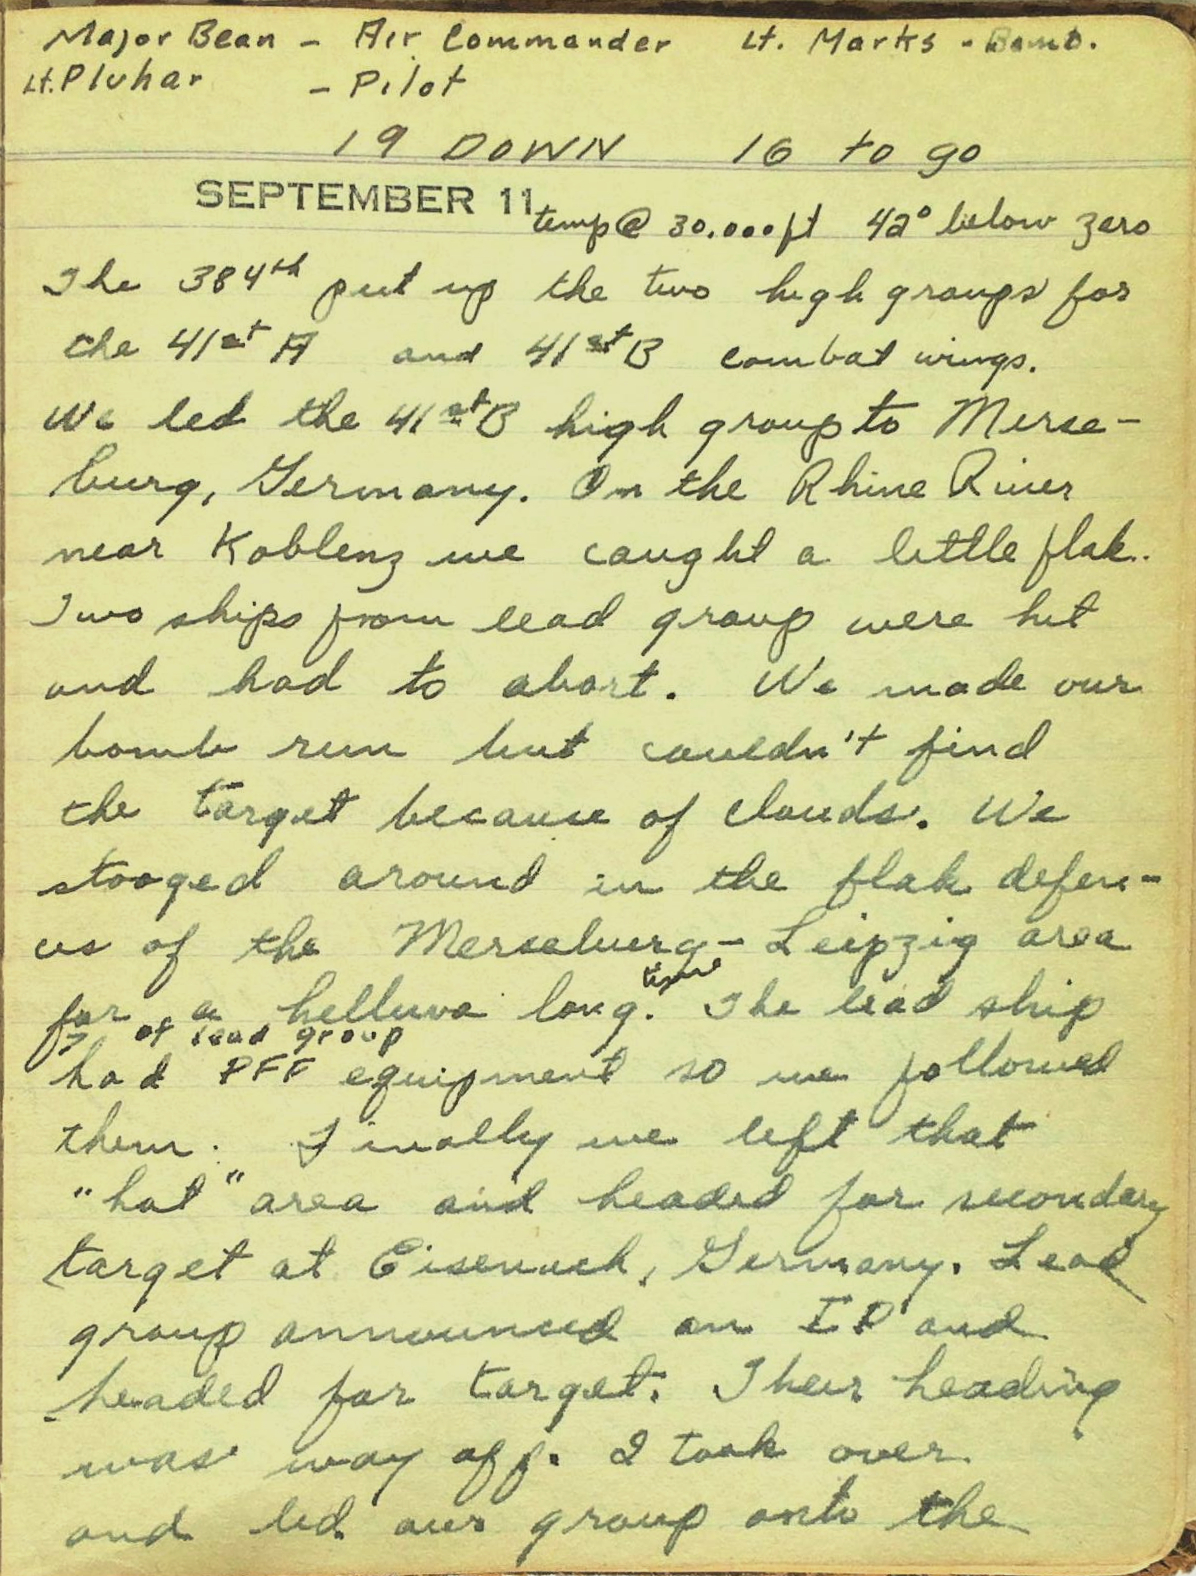 Major Bean - Air Commander Lt. Marks - Bomb.
Lt. Pluhar - Pilot
19 DOWN 16 to go
SEPTEMBER 11
temp @ 30.000 ft 42° below zero
The 384th put up the two high groups for
the 41st A and 41st B combat wings.
We led the 41st B high group to Merse-
burg, Germany. On the Rhine River
near Koblenz we caught a little flak.
Two ships from lead group were hit
and had to abort. We made our
bomb run but couldn't find
the target because of clouds. We
stooged around in the flak defen-
ces of the Merseburg - Leipzig area
for a helluva long time. The lead ship
of lead group
had PFF equipment so we followed
them. Finally we left that
"hot" area and headed for secondary
target at Eisenach, Germany. Lead
group announced an IP and
headed for target. Their heading
was way off. I took over
and led our group onto the